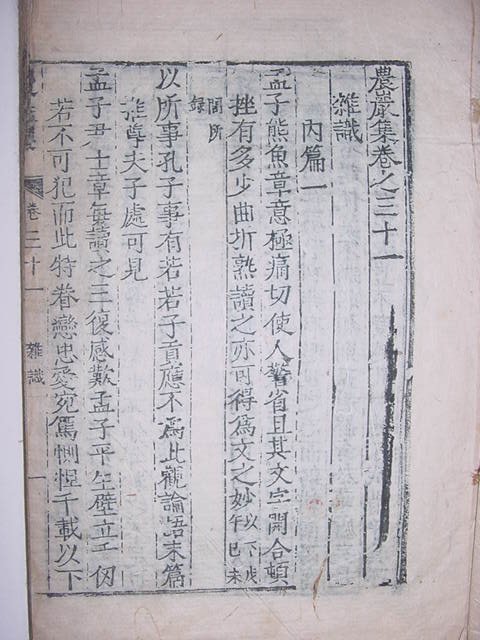 農巖集卷之三十一
雜識
內篇一
孟子熊魚章意極痛切使人警省且其文字開合頓
挫有多少曲折熟讀之亦可得爲文之妙以下戊午己未
聞所錄
以所事孔子事有若若子貢應不爲此觀論語末篇
推尊夫子處可見
孟子尹士章每讀之三復感歎孟子平生壁立千仞
若不可犯而此特眷戀忠愛宛篤惻怛千載以下
卷三十一
雜識
一